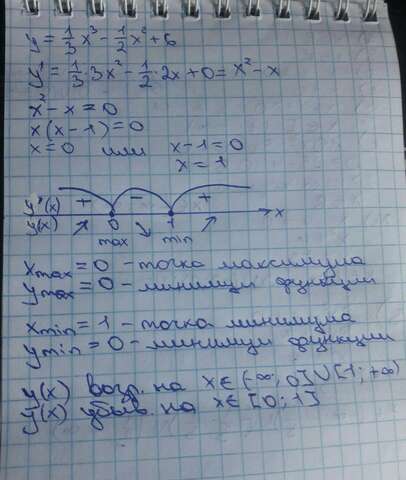 y = 1/3 x³ - 1/2 x² + 6
y' = 1/3 · 3x² - 1/2 · 2x + 0 = x² - x
x² - x = 0
x(x - 1) = 0
x = 0 или x - 1 = 0
x = 1
y'(x) + - + x
y(x) ↗ 0 ↘ 1 ↗
max min
xmax = 0 - точка максимума
ymax = 0 - минимум функции
xmin = 1 - точка минимума
ymin = 0 - минимум функции
y(x) возр. на x ∈ (-∞; 0] ∪ [1; +∞)
y(x) убыв. на x ∈ [0; 1]